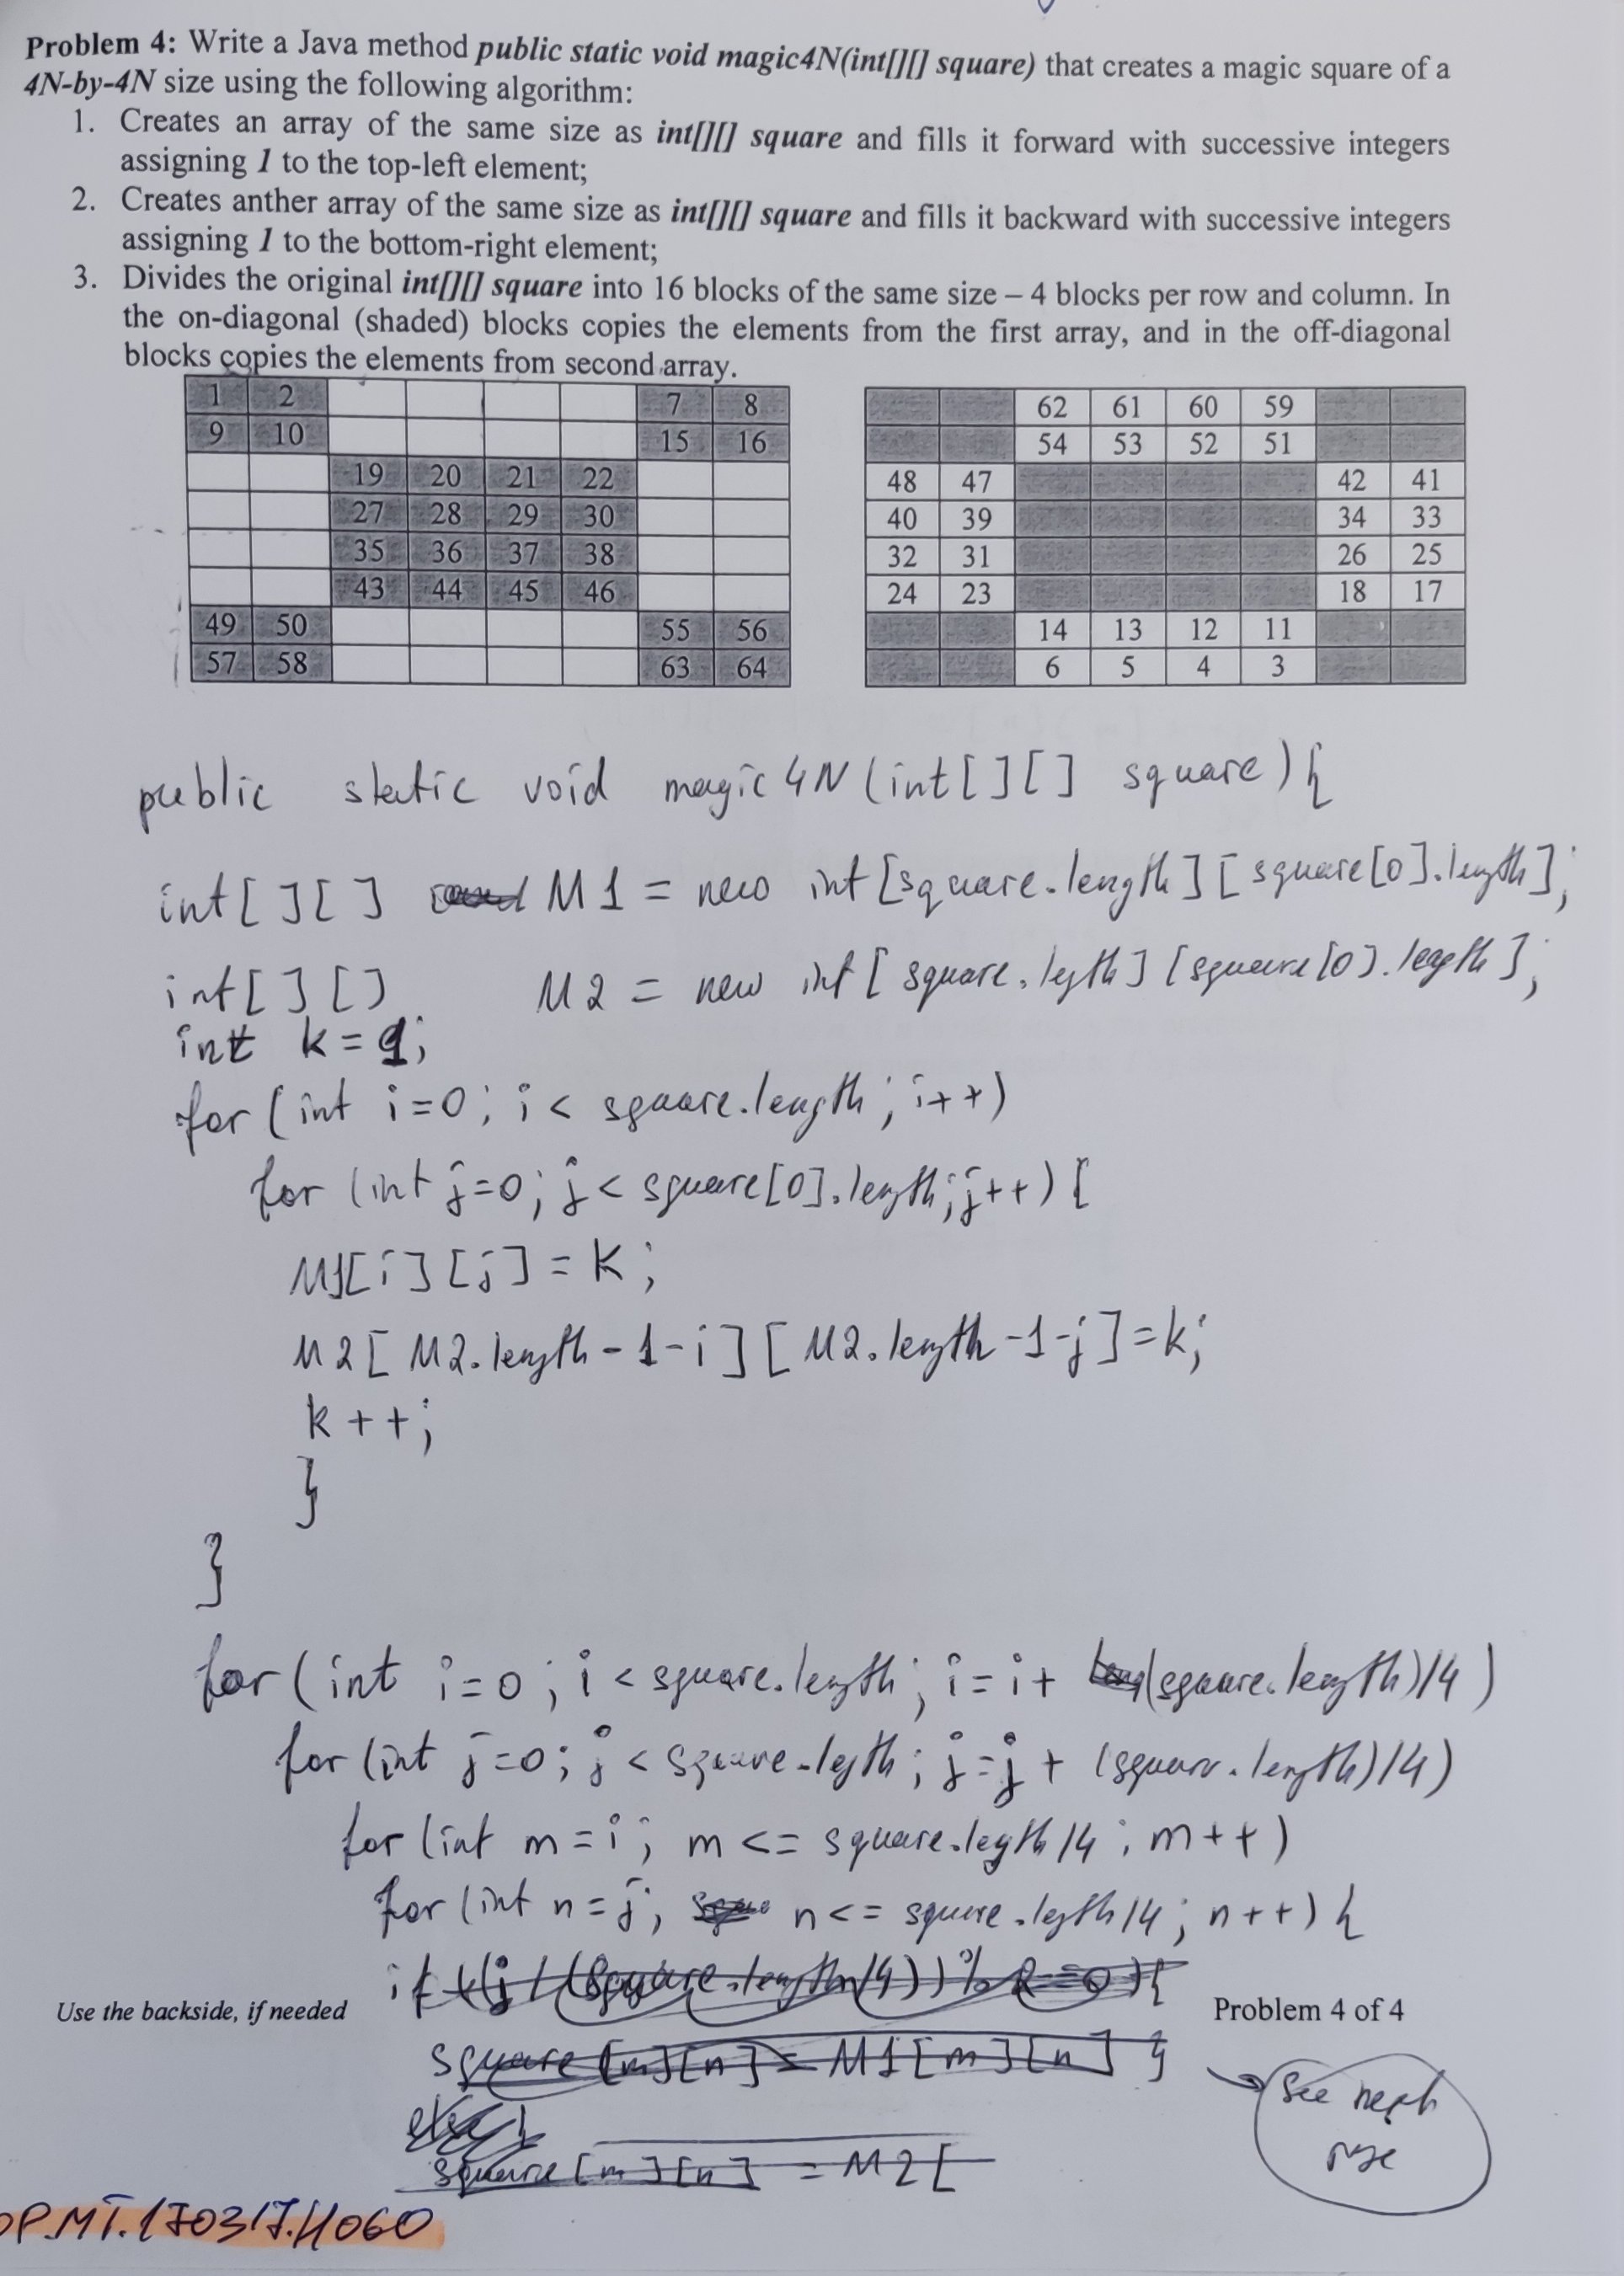 Problem 4: Write a Java method public static void magic4N(int[][] square) that creates a magic square of a
4N-by-4N size using the following algorithm:
1. Creates an array of the same size as int[][] square and fills it forward with successive integers
assigning 1 to the top-left element;
2. Creates anther array of the same size as int[][] square and fills it backward with successive integers
assigning 1 to the bottom-right element;
3. Divides the original int[][] square into 16 blocks of the same size – 4 blocks per row and column. In
the on-diagonal (shaded) blocks copies the elements from the first array, and in the off-diagonal
blocks copies the elements from second array.
1 2 7 8
9 10 15 16
19 20 21 22
27 28 29 30
35 36 37 38
43 44 45 46
49 50 55 56
57 58 63 64
62 61 60 59
54 53 52 51
48 47 42 41
40 39 34 33
32 31 26 25
24 23 18 17
14 13 12 11
6 5 4 3
public static void magic4N(int[][] square){
int[][] M1 = new int[square.length][square[0].length];
int[][] M2 = new int[square.legth][square[0].length];
int k=1;
for (int i=0; i< square.length; i++)
for (int j=0; j< square[0].length; j++){
M1[i][j]=k;
M2[M2.length-1-i][M2.length-1-j]=k;
k++;
}
}
for (int i=0; i<square.length; i=i+ (square.length)/4)
for (int j=0; j<square.legth; j=j+ (square.length)/4)
for (int m=i; m<= square.legth/4; m++)
for (int n=j; n<= square.legth/4; n++){
if ((j/(square.length/4))%2==0){
Use the backside, if needed
Problem 4 of 4
square[m][n]=M1[m][n] }
else{
square[m][n] =M2[
See